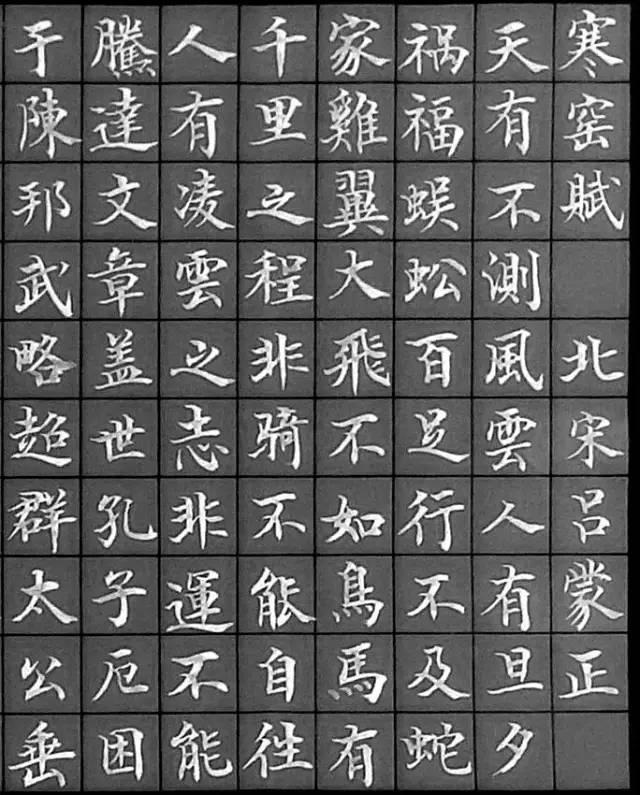 寒窑賦 北宋吕蒙正
天有不測風雲人有旦夕
祸福蜈蚣百足行不及蛇
家雞翼大飛不如鳥馬有
千里之程非骑不能自往
人有凌雲之志非運不能
騰達文章盖世孔子厄困
于陳邦武略超群太公垂